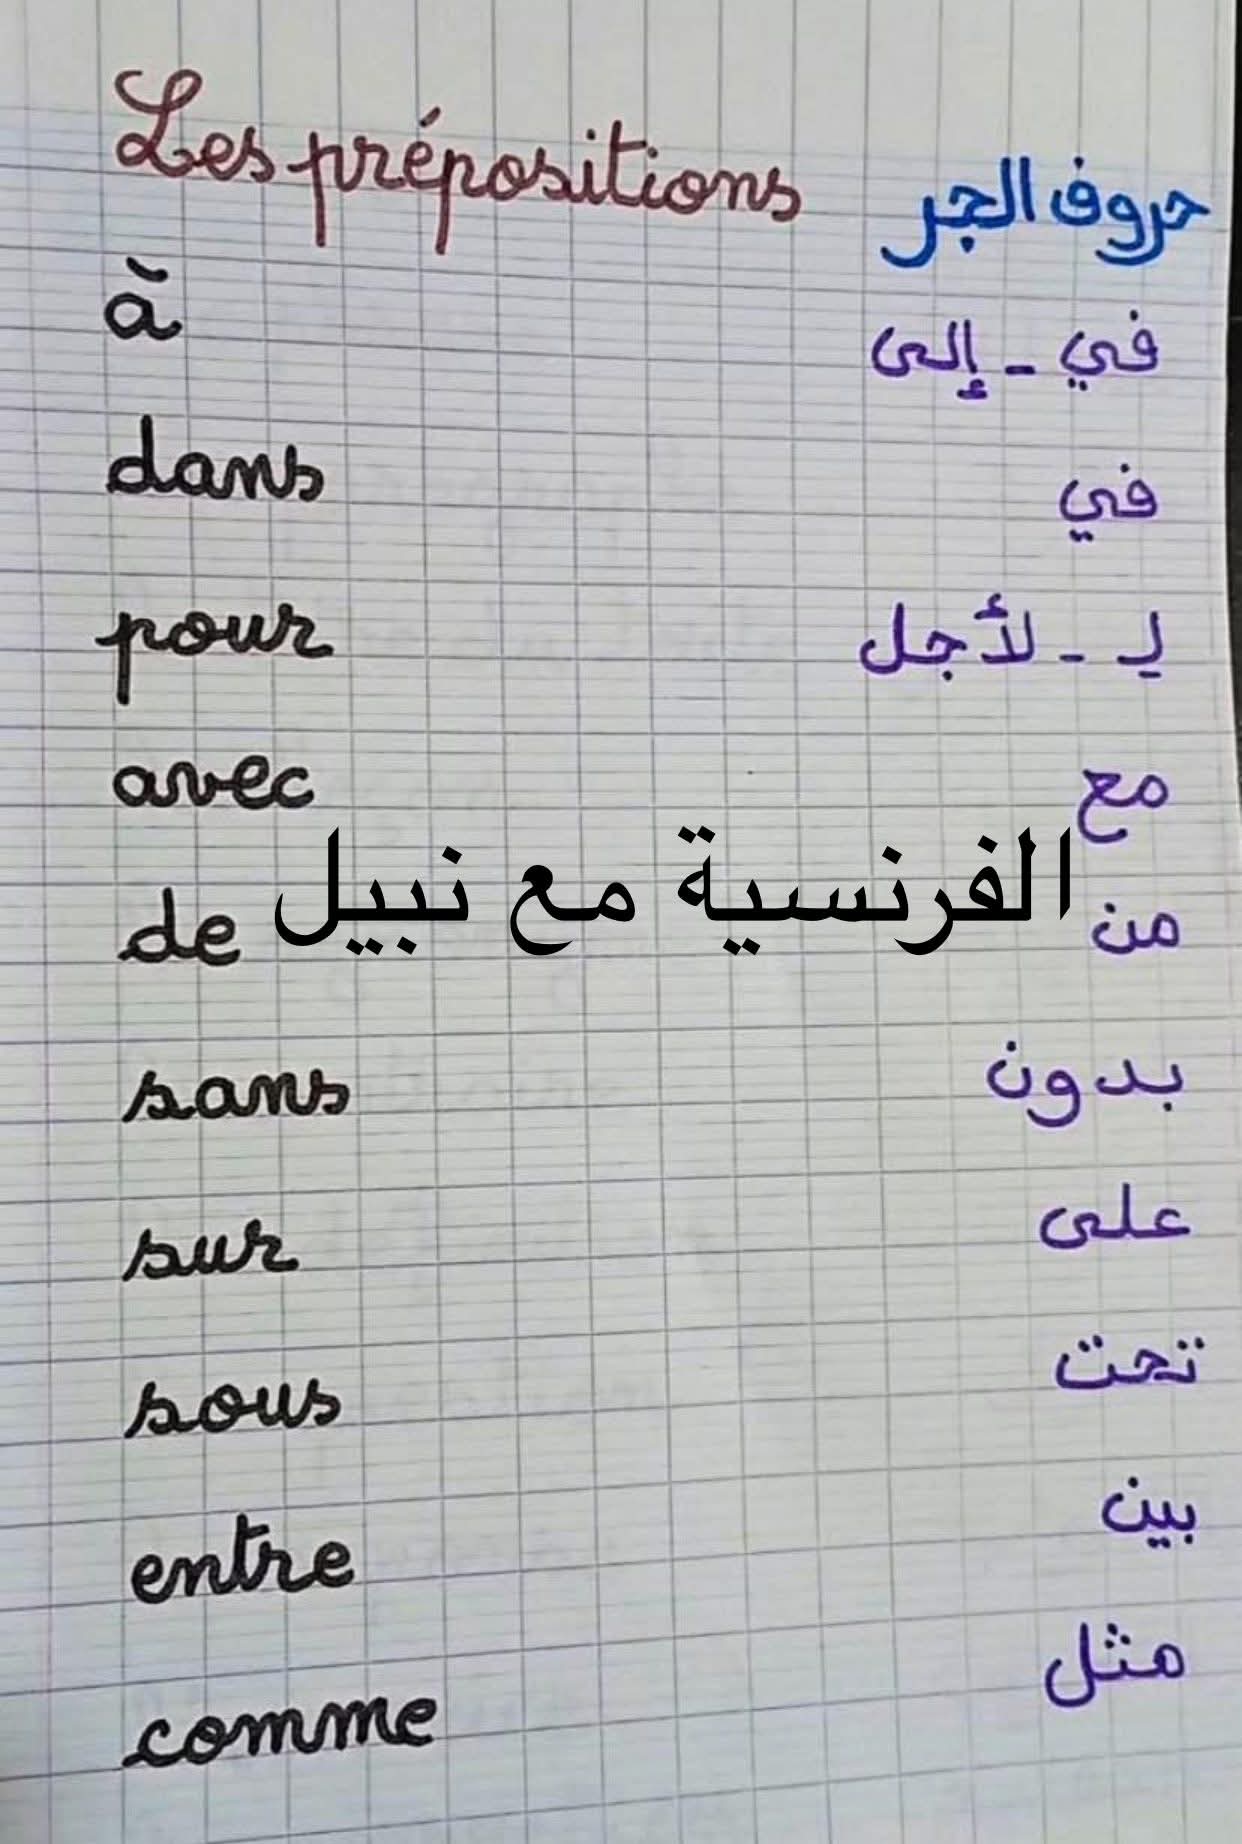 Les prépositions حروف الجر
à في - إلى
dans في
pour لـ - لأجل
avec مع
الفرنسية مع نبيل
de من
sans بدون
sur على
sous تحت
entre بين
comme مثل